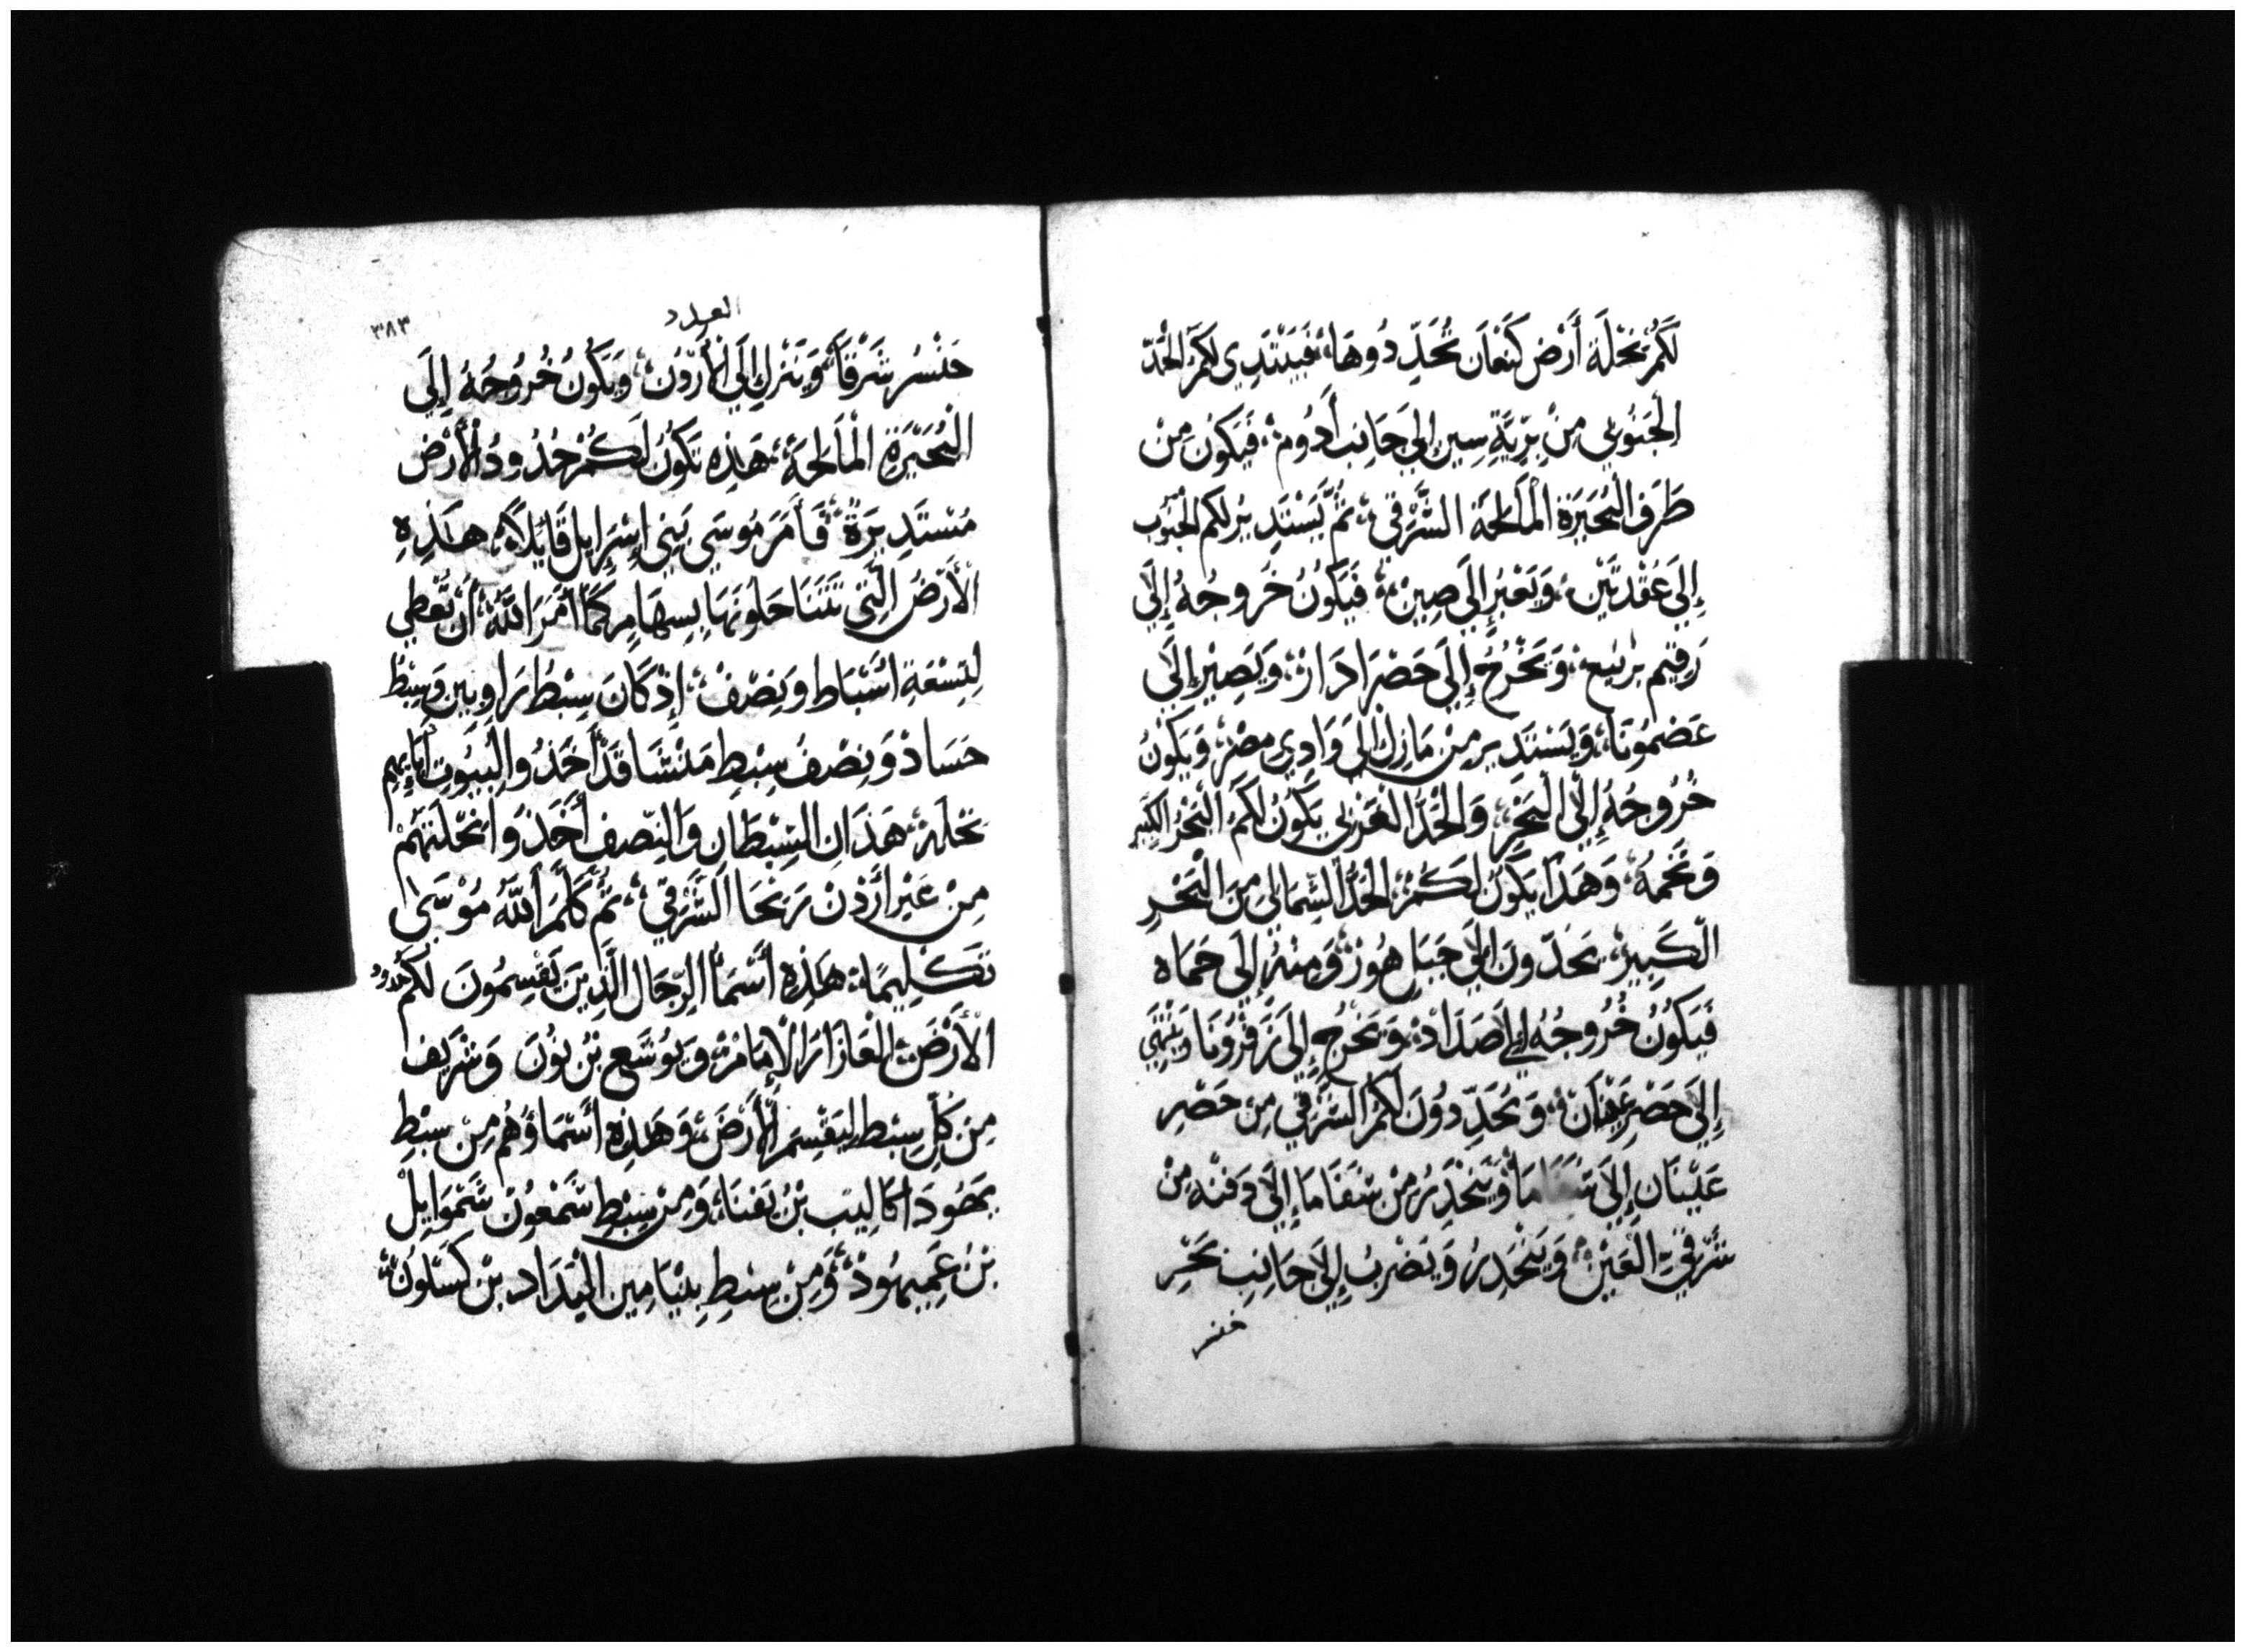 لَكُمْ نِحْلَة أَرْض كَنْعَان تُحَدِّدُوهَا، فَيَبْتَدِي لَكُمْ الحَدّ
الْجَنُوبِي مِنْ بَرِّيَّةِ سِين إِلَى جَانِب أَدُوم، فَيَكُون مِنْ
طَرَف الْبُحَيَرَة الْمَالِحَة الشَّرْقِي، ثُمَّ يَسْتَدِير لَكُم الجَنُوب
إِلَى عُقْدَتَيْن، وَيَعْبُر إِلَى صِين، فَيَكُونُ خُرُوجُهُ إِلَى
رَقِيم بَرْنِيع، وَيَخْرُجُ إِلَى حَضْرَادَار، وَيَصِيْر إِلَى
عَضمُونَا، وَيَسْتَدِير مِنْ مَازِك إِلَى وَادِي مِصْر، وَيَكُونُ
خُرُوجُهُ إِلَى الْبَحْرِ، وَالْحَدُّ الغَرْبِي يَكُونُ لَكُمُ الْبَحْرُ الكَبِيْر
وَتُخْمهُ، وَهَذَا يَكُونُ لَكُمْ، الحَدُّ الشِّمَالِي مِنَ الْبَحْرِ
الْكَبِيرْ، تَحُدّونَ إِلَى جَبَلِ هُوْر، وَمِنْهُ إِلَى حَمَاه
فَيَكُونُ خُرُوجُهُ إِلَى صَدَاد، وَيَخْرُجِ إِلَى زَفْرُونَا وَيَنْتَهِي
إِلَى حَصْرِ عَيْنَان، وَتُحَدِّدُونَ لَكُمْ الشَّرْقِي مِن حَصْرِ
عَيْنَان إِلَى شَفَامَا وَيَنْحَدِرُ مِنْ شَفَامَا إِلَى دفنه مِنْ
شَرْقِيِّ الْعَيْنِ، وَيَنْحَدِرُ وَيَضْرِبُ إِلَى جَانِبِ بَحْرِ
جنسر
العدد
٣٨٣
جَنْسُر شَرْقًا، وَيَنْزِل إِلَى الأُرْدُن، وَيَكُونُ خُرُوجُهُ إِلَى
الْبُحَيْرَةِ الْمَالِحَة، هَذِه تَكُونُ لَكُمْ حُدُودُ الْأَرْض
مُسْتَدِيرَةً، فَأَمَرَ مُوسَى بَنِي إِسْرَايِل قَايْلًا، هَذِهِ
الْأَرْضُ الَّتِي تَتَنَاحَلُونَهَا بِسِهَامٍ كَمَا أَمَرَ اللَّهُ أَنْ تُعْطِي
لِتِسْعَةِ أَسْبَاط وَنِصْفْ، إِذْ كَانَ سِبْطُ رَاوبين وَسِبْطُ
جَسَادْ وَنِصْفُ سِبْطِ مَنْشَا قَدْ أَخَذُوا لِبِيُوتِ أَبَايِهِم
نحلهم، هَذَانِ السِّبْطَانِ وَالنِّصْف أَخَذُوا نِحْلَتَهُمْ
مِنْ عَبْرِ أُرْدُنْ رَيْحَا الشَّرْقِيِّ، ثُمَّ كَلَّمَ اللَّهُ مُوْسَى
تَكْلِيمًا، هَذِهِ أَسْمَا الرِّجَال الَّذِينَ يَقْسِمُونَ لَكُم حدود
الْأَرْضَ، الْعَازَارَ الْإِمَامْ، وَيُوشَع بْنُ نُونَ وَشَرِيف
مِنْ كُلِّ سِبْط لِيَقْسِمَ الْأَرْضَ، وَهَذِهِ أَسْمَاؤُهُمْ مِنْ سِبْطِ
يَهُودَا كَالِيَب بْنُ يَفنَا، وَمِنْ سِبْطِ شَمْعُوْن شَمْوَايِلْ
بْنُ عَمِيهُوذْ، وَمِنْ سِبْطِ بِنْيَامِين الْيَدَاد بْن كَسْلُونْ،